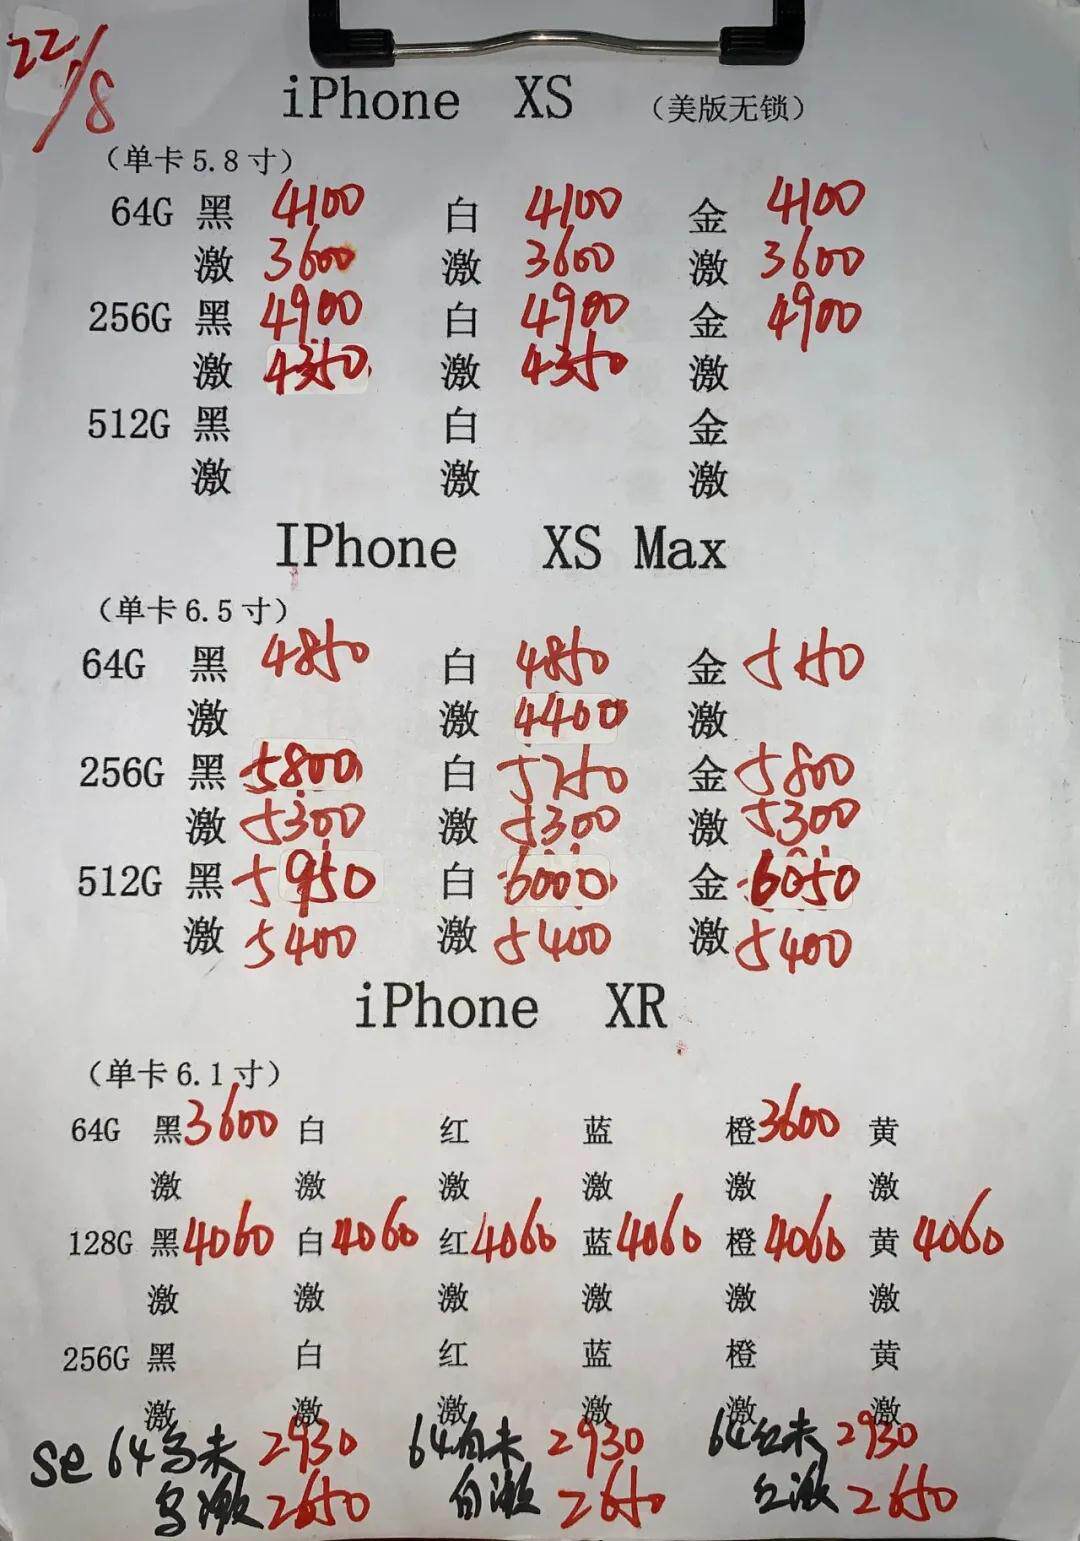 22/8
iPhone XS （美版无锁）
（单卡5.8寸）
64G 黑 4100 白 4100 金 4100
激 3600 激 3600 激 3600
256G 黑 4900 白 4900 金 4900
激 4350 激 4350 激
512G 黑 白 金
激 激 激
IPhone XS Max
（单卡6.5寸）
64G 黑 4850 白 4850 金 5150
激 激 4400 激
256G 黑 5800 白 5750 金 5800
激 5300 激 5300 激 5300
512G 黑 5950 白 6000 金 6050
激 5400 激 5400 激 5400
iPhone XR
（单卡6.1寸）
64G 黑 3600 白 红 蓝 橙 3600 黄
激 激 激 激 激 激
128G 黑 4060 白 4060 红 4060 蓝 4060 橙 4060 黄 4060
激 激 激 激 激 激
256G 黑 白 红 蓝 橙 黄
激 激 激 激 激 激
se 64乌未 2930 64白未 2930 64红未 2930
乌激 2650 白激 2650 红激 2650